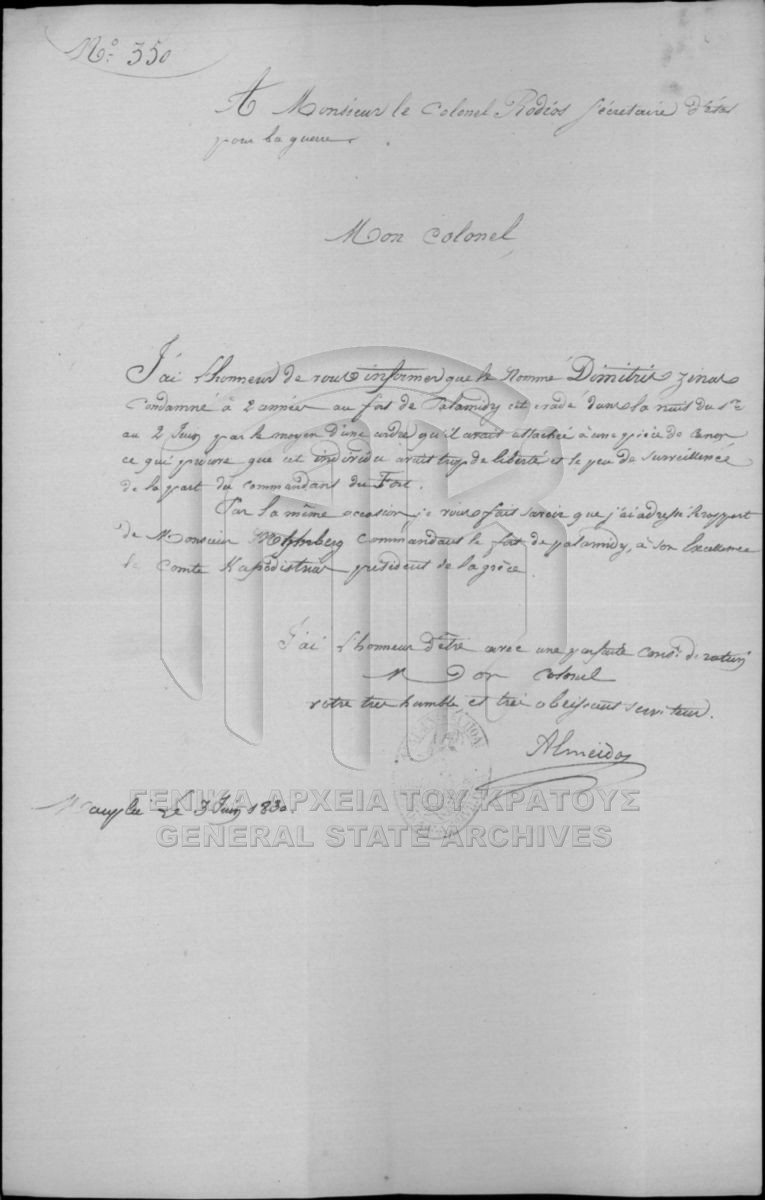 N.º 350
A Monsieur le Colonel Rodios Sécretaire d'État
pour la guerre.
Mon Colonel
J'ai l'honneur de vous informer que le Nommé Dimitris Zinas
Condamné à 2 années au fort de Palamidy est évadé dans la nuit du 1.er
au 2 Juin par le moyen d'une corde qu'il avait attachée à une pièce de Canon
ce qui prouve que cet individu avait trop de liberté et le peu de surveillence
de la part du commandant du Fort.
Par la même occasion je vous fait savoir que j'ai adressé le rapport
de Monsieur commandant le fort de palamidy, à son Excellence
le Comte Kapodistrias président de la grèce.
J'ai l'honneur d'être avec une parfaite considération
Mon Colonel
votre tres humble, et trés obeissant serviteur.
Almeida
Nauplie Le 3 Juin 1830.
ΓΕΝΙΚΑ ΑΡΧΕΙΑ ΤΟΥ ΚΡΑΤΟΥΣ
GENERAL STATE ARCHIVES